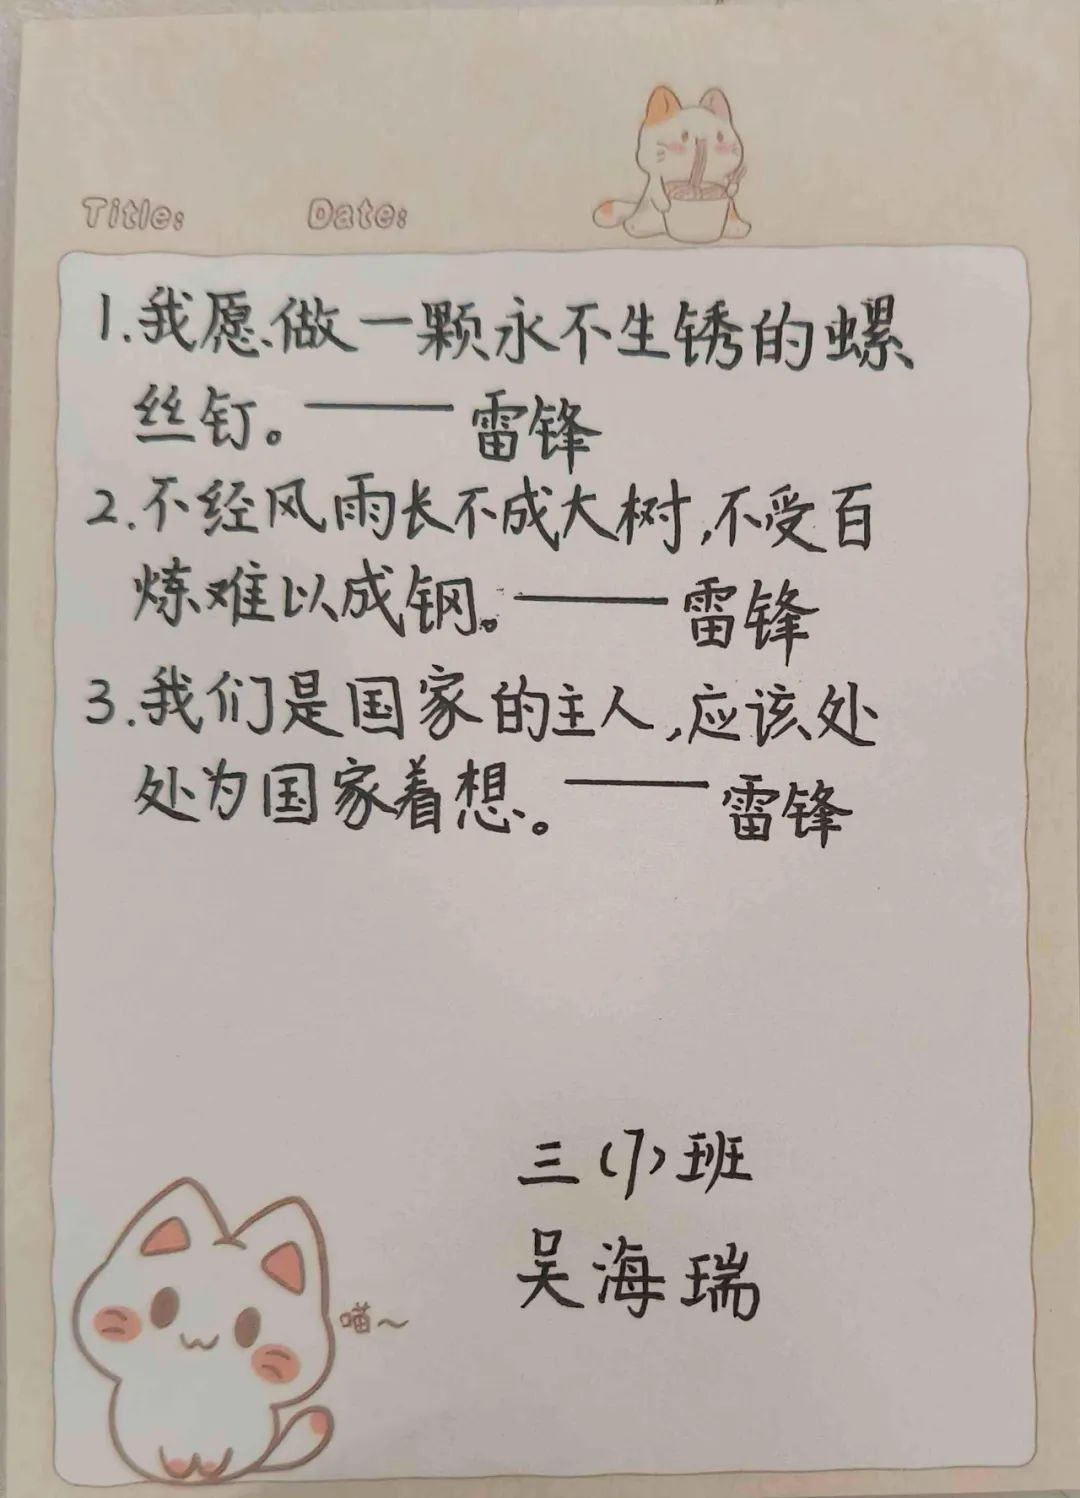 Title: Date:
1.我愿做一颗永不生锈的螺
丝钉。——雷锋
2.不经风雨长不成大树,不受百
炼难以成钢。——雷锋
3.我们是国家的主人,应该处
处为国家着想。——雷锋
三(7)班
吴海瑞
喵~